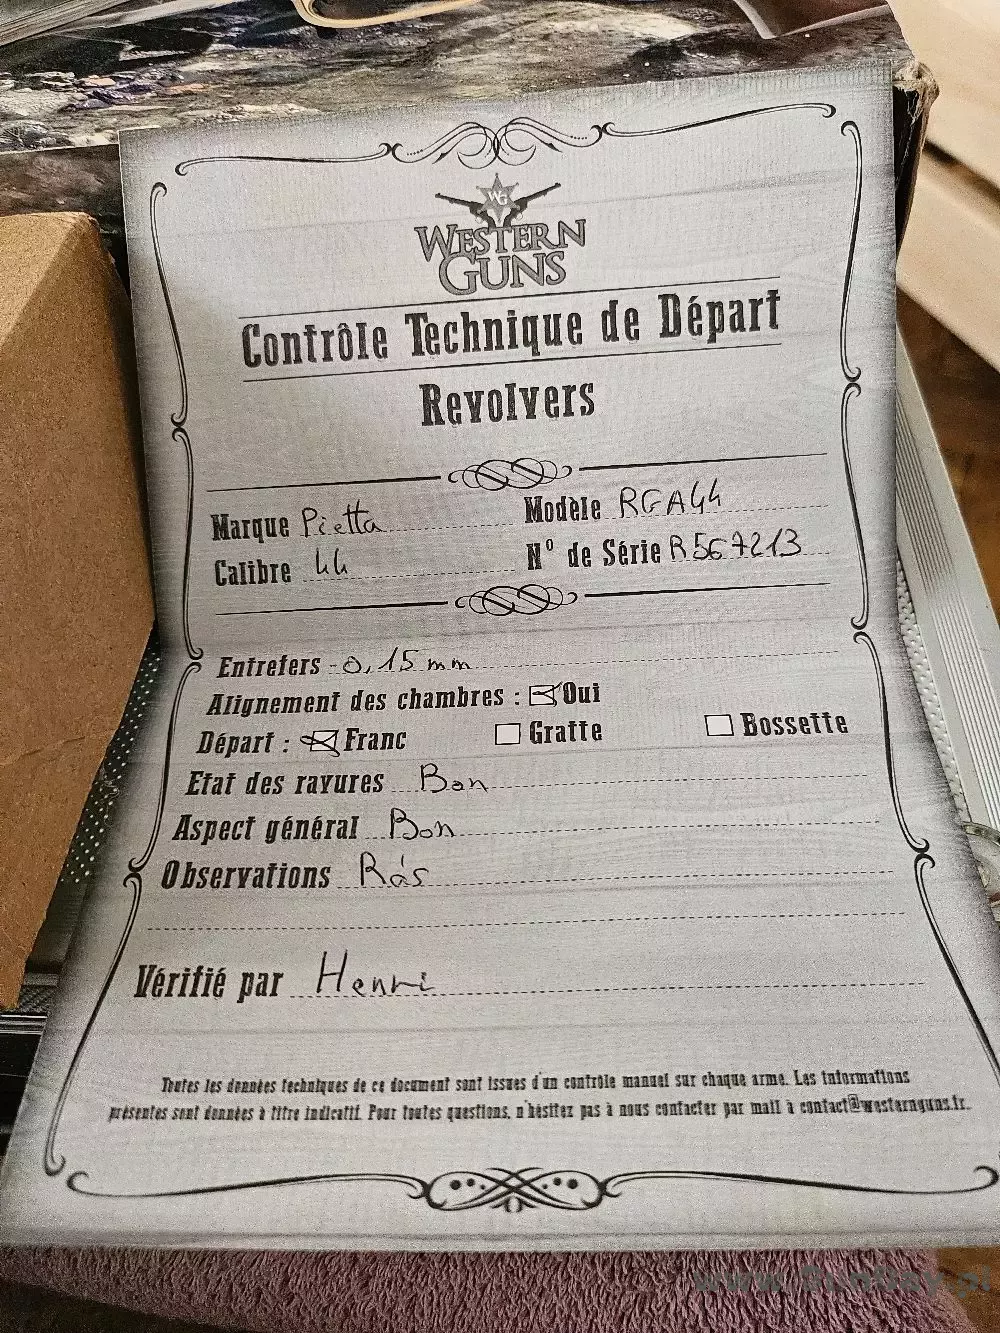 WG
WESTERN
GUNS
Contrôle Technique de Départ
Revolvers
Marque Pietta Modèle RGA44
Calibre 44 N° de Série R567213
Entrefers 0,15 mm
Alignement des chambres : Oui
Départ : Franc Gratte Bossette
Etat des rayures Bon
Aspect général Bon
Observations Ras
Vérifié par Henri
Toutes les données techniques de ce document sont issues d'un contrôle manuel sur chaque arme. Les informations
présentes sont données à titre indicatif. Pour toutes questions, n'hésitez pas à nous contacter par mail à contact@westernguns.fr.